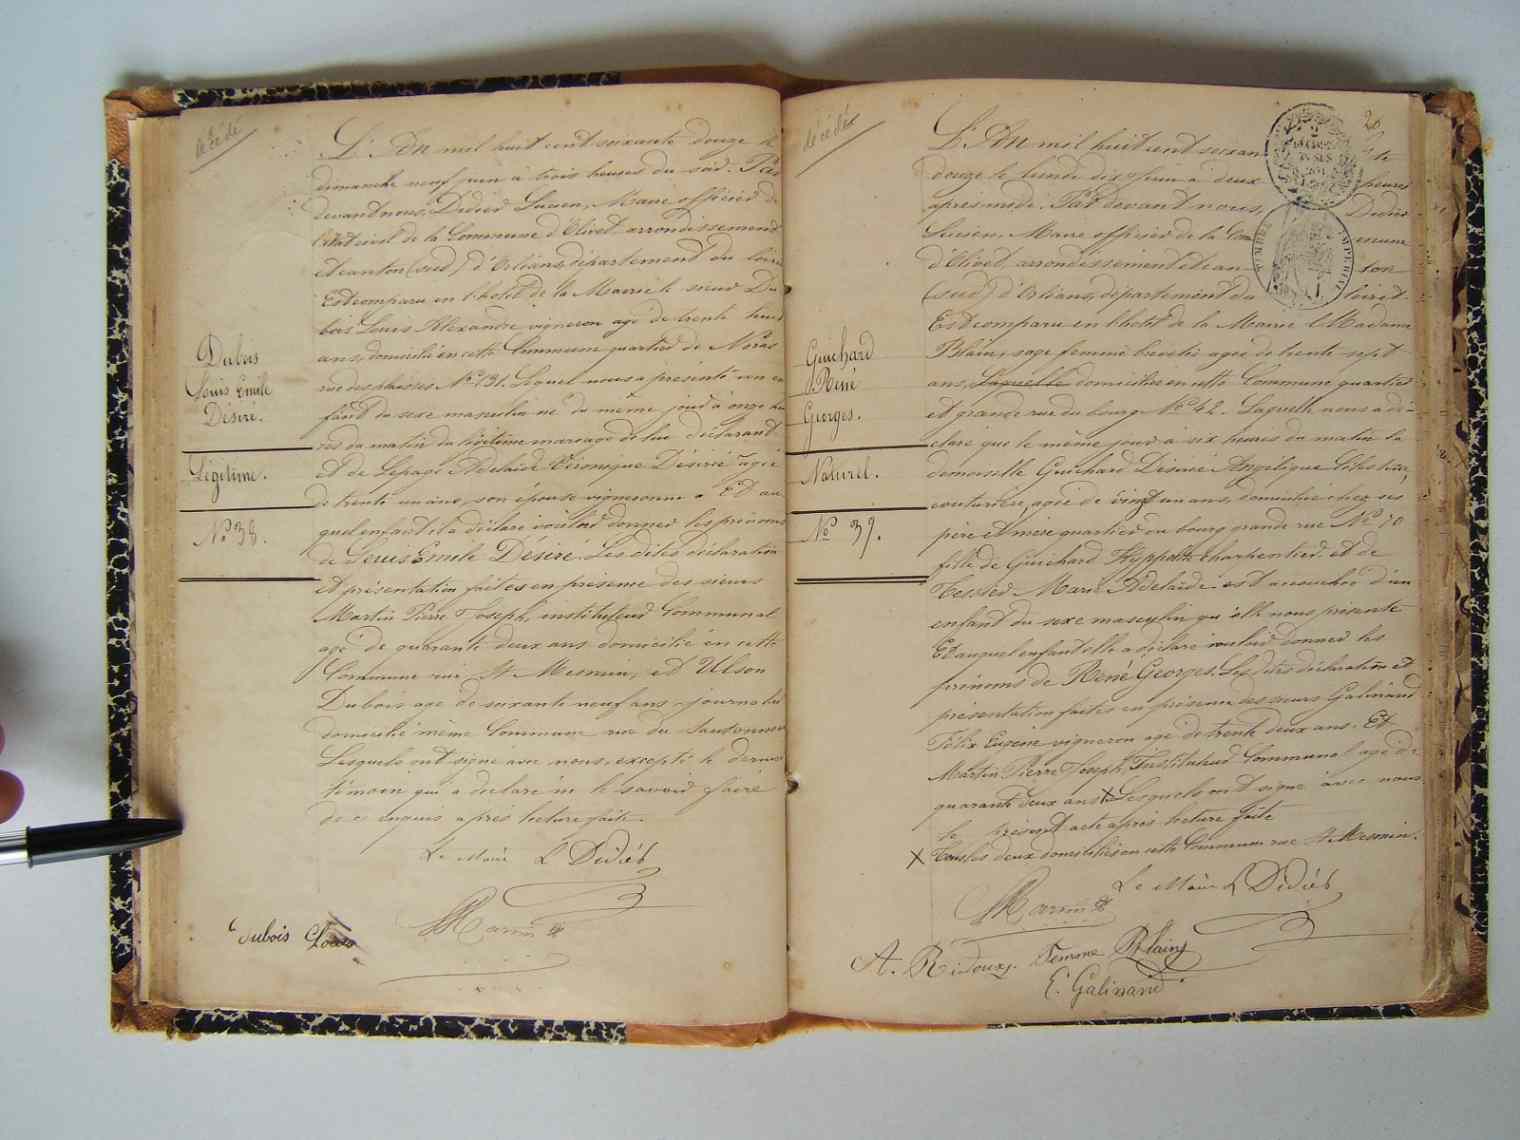 décédé
Dubois
Louis Emile
Désiré.
Légitime.
No. 38.
L'An mil huit cent soixante douze le
dimanche neuf juin à trois heures du soir. Par
devant nous, Didier Lucien, Maire officier de
l'état civil de la Commune d'Olivet arrondissement
et canton (sud) d'Orléans, département du loiret
Est comparu en l'hotel de la Mairie le sieur Du
bois Louis Alexandre vigneron agé de trente
ans, domicilié en cette Commune quartier de
rue des No. 131. Lequel nous a présenté un en
fant du sexe masculin né du même jour à onze heu
res du matin du légitime mariage de lui déclarant
et de Lesage Adelaïde Véronique Désirée agée
de trente un ans, son épouse vigneronne. Et au
quel enfant il a déclaré vouloir donner les prénoms
de Louis Emile Désiré. Les dites déclaration
et présentation faites en présence des sieurs
Martin Pierre Joseph, instituteur Communal
agé de quarante deux ans domicilié en cette
Commune rue St Mesmin, et Ulson
Dubois agé de soixante neuf ans journalier
domicilié même Commune rue du
Lesquels ont signé avec nous, excepté le dernier
témoin qui a déclaré ne le savoir faire
de ce enquis après lecture faite.
Le Maire L Didier
Martin
Dubois Louis
décédé
20
Guichard
René
Georges.
Naturel.
No. 39.
L'An mil huit cent soixante
douze le lundi dix Juin à deux heures
après midi. Par devant nous, Didier
Lucien, Maire officier de la Commune
d'Olivet, arrondissement et canton
(sud) d'Orléans, département du loiret.
Est comparu en l'hotel de la Mairie la Madame
Blain, sage femme brevetée agée de trente sept
ans, Laquelle domiciliée en cette Commune quartier
et grande rue du bourg No. 42. Laquelle nous a dé-
claré que le même jour à six heures du matin la
demoiselle Guichard Désirée Angélique Célestine,
couturière, agée de vingt un ans, domiciliée chez ses
père et mère quartier du bourg grande rue No. 70
fille de Guichard Hyppolite charpentier et de
Tessier Marie Adelaïde est accouchée d'un
enfant du sexe masculin qu'elle nous présente
Et auquel enfant elle a déclaré vouloir donner les
prénoms de René Georges. Les dites déclaration et
présentation faites en présence des sieurs Galinand
Félix Eugène vigneron agé de trente deux ans. Et
Martin Pierre Joseph, Instituteur Communal agé de
quarante deux ans X Lesquels ont signé avec nous
le présent acte après lecture faite
X Tous les deux domiciliés en cette Commune rue St Mesmin.
Le Maire L Didier
Martin
A. Ridoux, Femme Blain
E. Galinand